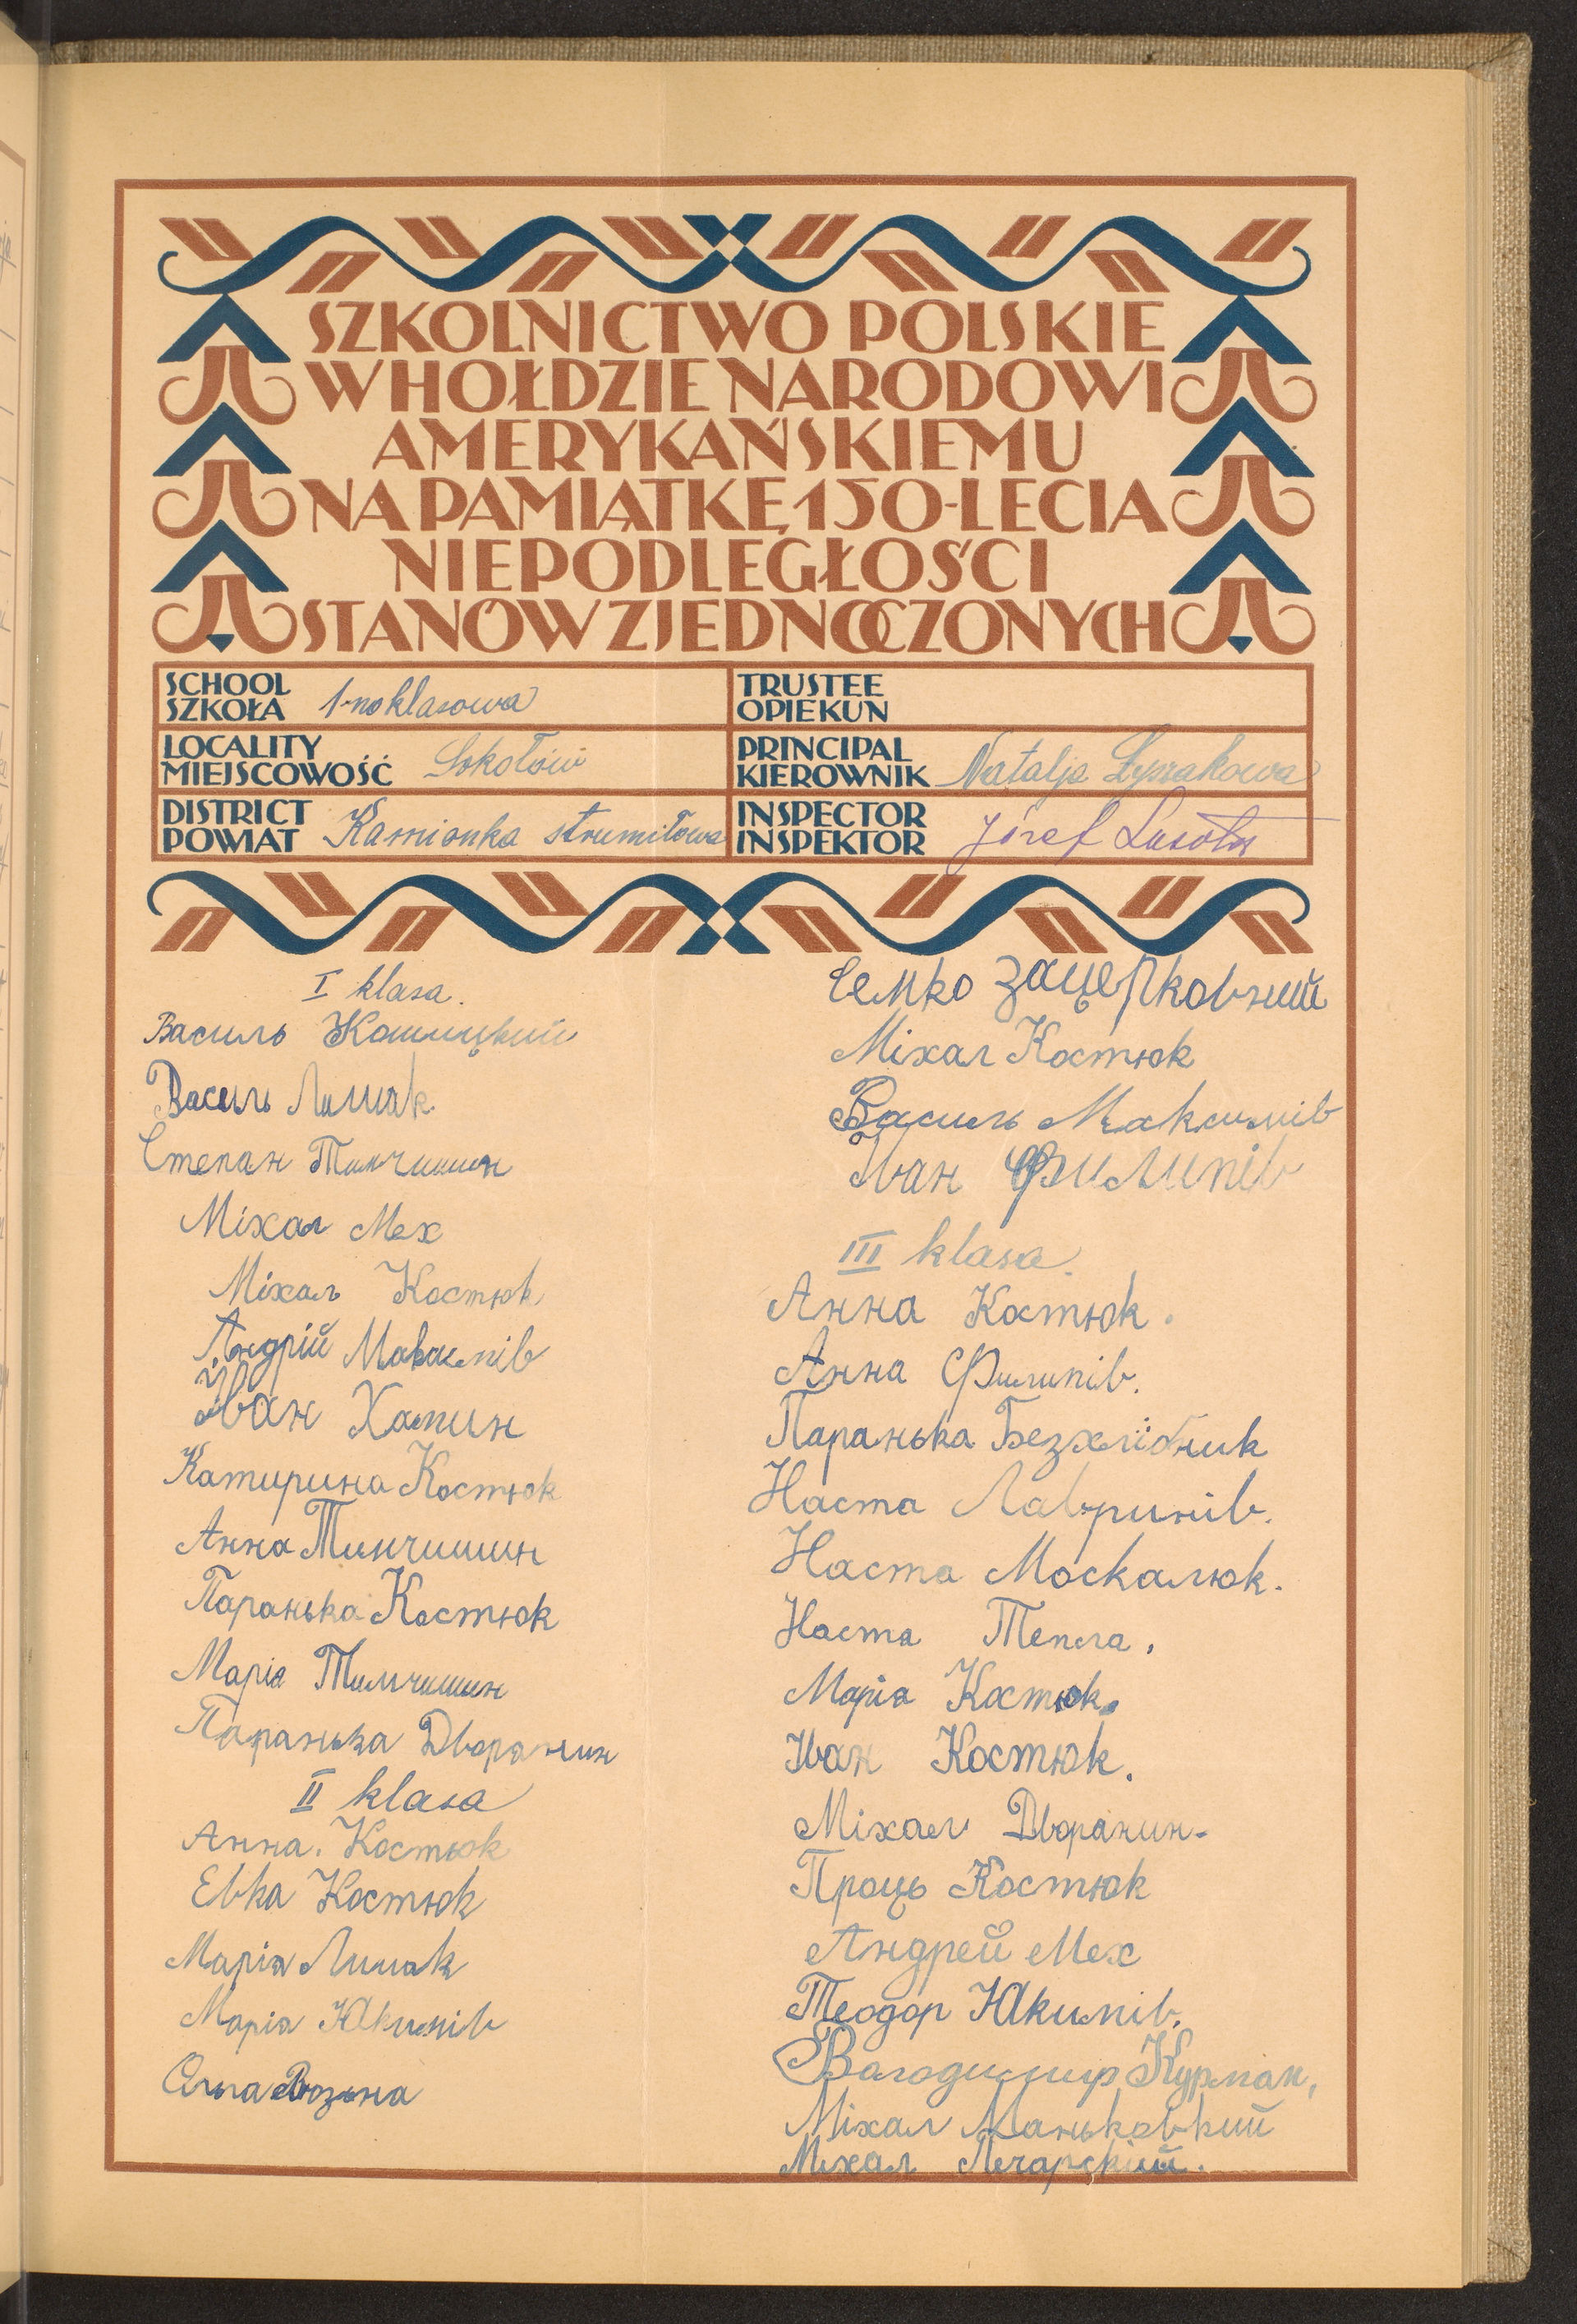 SZKOLNICTWO POLSKIE
W HOŁDZIE NARODOWI
AMERYKAŃSKIEMU
NA PAMIĄTKĘ 150-LECIA
NIEPODLEGŁOŚCI
STANÓW ZJEDNOCZONYCH
SCHOOL
SZKOŁA 1-no klasowa
TRUSTEE
OPIEKUN
LOCALITY
MIEJSCOWOŚĆ Sokołów
PRINCIPAL
KIEROWNIK Natalja
DISTRICT
POWIAT Kamionka strumiłowa
INSPECTOR
INSPEKTOR Józef Lasota
I klasa.
Василь Кошицкий
Василь Лишак.
Степан Тимчишин
Міхал Мех
Міхаль Костюк
Андрій Максимів
Іван Хамин
Катирина Костюк
Анна Тимчишин
Паранька Костюк
Маріа Тимчишин
Паранька Дворанин
II klasa
Анна. Костюк
Евка Костюк
Маріа Лишак
Маріа Юкимів
Олга
Семко Зацерковний
Міхал Костюк
Василь Максимів
Іван Филипів
III klasa.
Анна Костюк.
Анна Филипів.
Паранька Безхлїбник
Наста Лавринів.
Наста Москалюк.
Наста Тепла.
Маріа Костюк.
Іван Костюк.
Міхал Дворанин-
Проць Костюк
Андрей Мех
Теодор Юкимів.
Володимир Курман,
Міхал Маньковкий
Міхал Печарский.